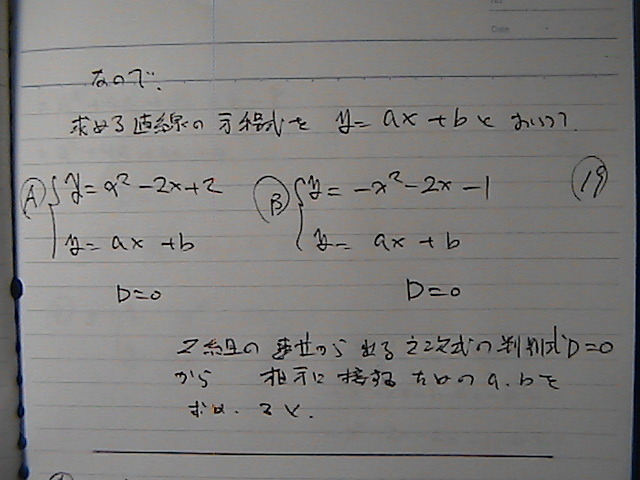 なので、
求める直線の方程式を y = ax + b と おいて
Ⓐ { y = x² - 2x + 2 Ⓑ { y = -x² - 2x - 1 ⑲
y = ax + b y = ax + b
D = 0 D = 0
2組の 連立から 出る 2次式の判別式D=0
から 相方に 接する ための a.bを
求め. 2x.